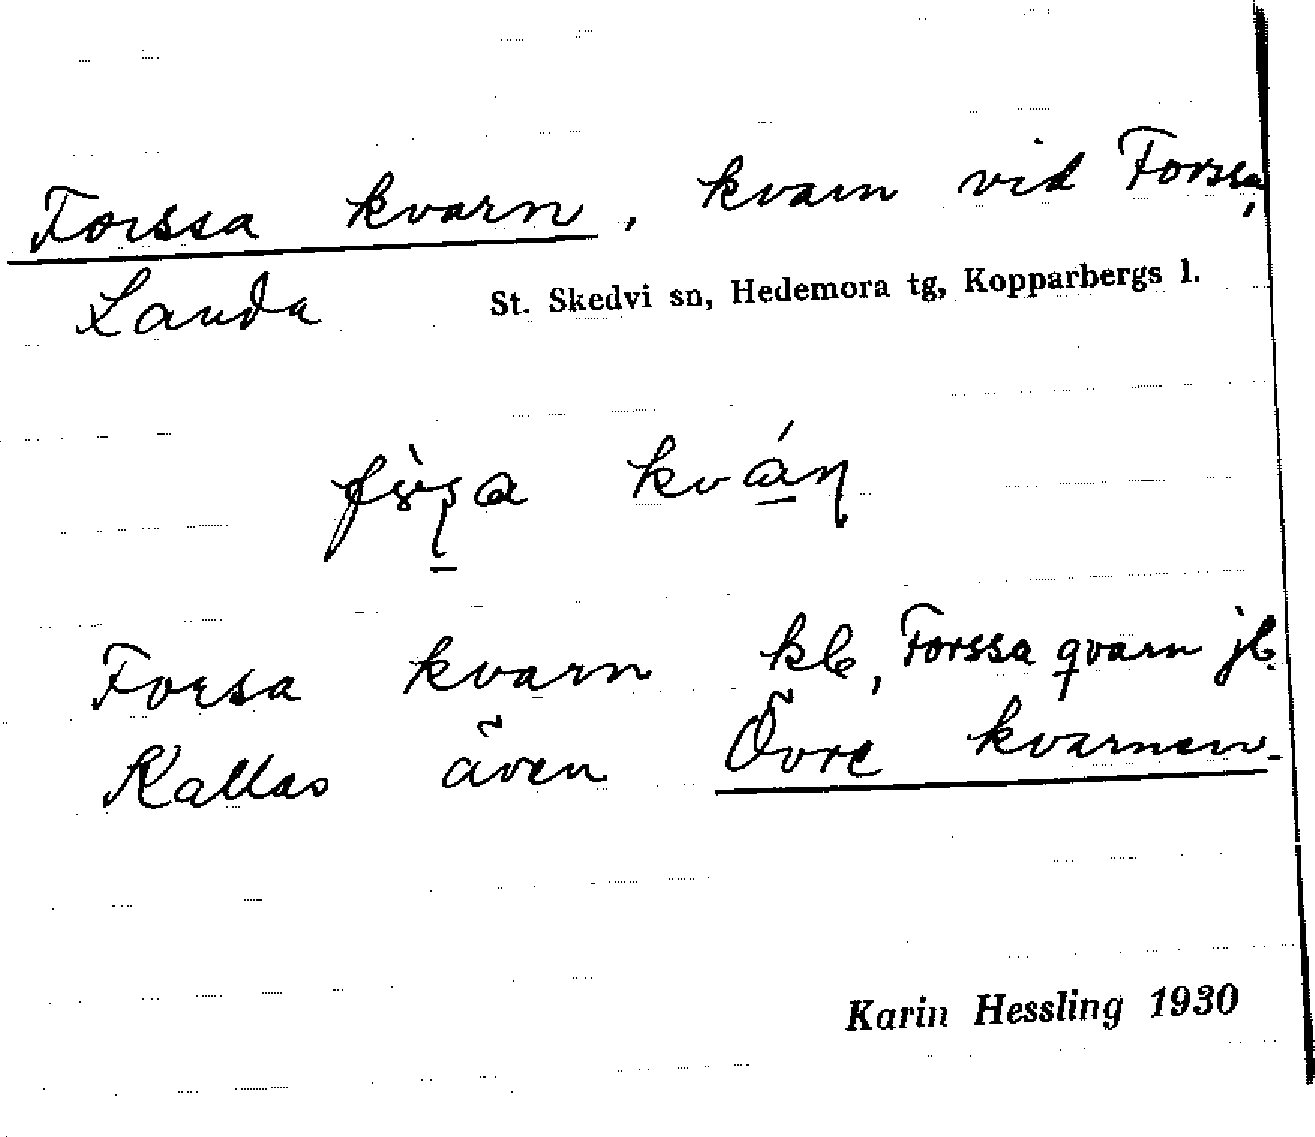 Forssa kvarn, kvarn vid Forssa,
Landa St. Skedvi sn, Hedemora tg, Kopparbergs l.
kván
Forsa kvarn kb, Forssa qvarn jb.
Kallas även Övre kvarnen.
Karin Hessling 1930